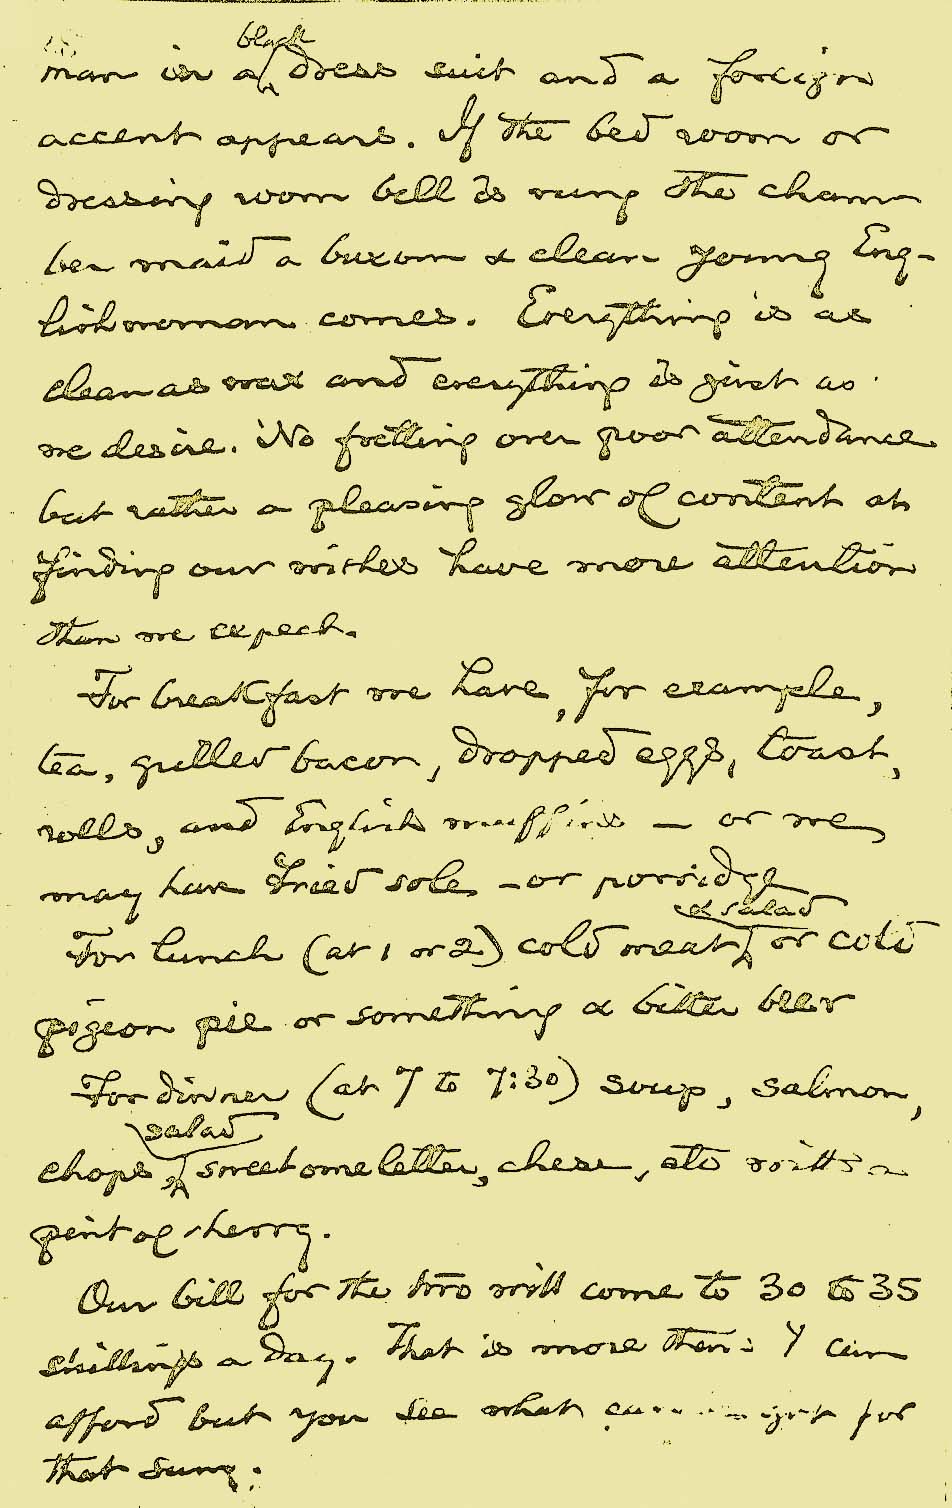 man in a black dress suit and a foreign
accent appears. If the bed room or
dressing room bell is rung the cham
ber maid a buxom & clean young Eng-
lishwoman comes. Everything is as
clean as wax and everything is just as
we desire. No fretting over poor attendance
but rather a pleasing glow of content at
finding our wishes have more attention
than we expect.
For breakfast we have, for example,
tea, grilled bacon, dropped eggs, toast,
rolls, and English muffins — or we
may have fried sole — or porridge
For lunch (at 1 or 2) cold meat & salad or cold
pigeon pie or something & bitter beer
For dinner (at 7 to 7:30) soup, salmon,
chops, salad sweet omelette, chese, etc with a
pint of sherry.
Our bill for the two will come to 30 to 35
shillings a day. That is more then I can
afford but you see what for
that sum.